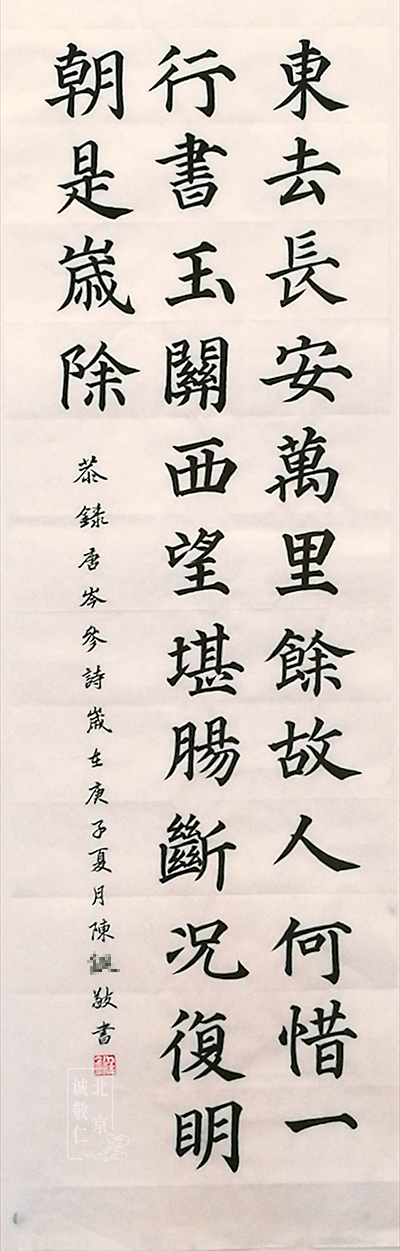 東去長安萬里餘故人何惜一
行書玉關西望堪腸斷况復明
朝是歳除
恭録唐岑參詩歳在庚子夏月陳敬書
北京
诚敬仁